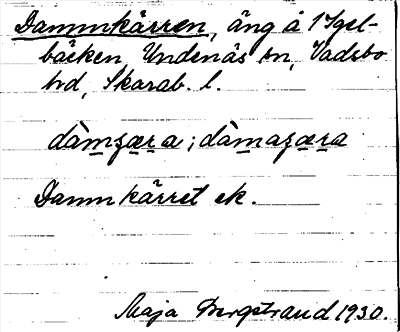 Dammkärren, äng å 1 Igel-
bäcken, Undenäs sn, Vadsbo
hd, Skarab. l.
Dammkärret ek.
Maja Bergstrand 1930.